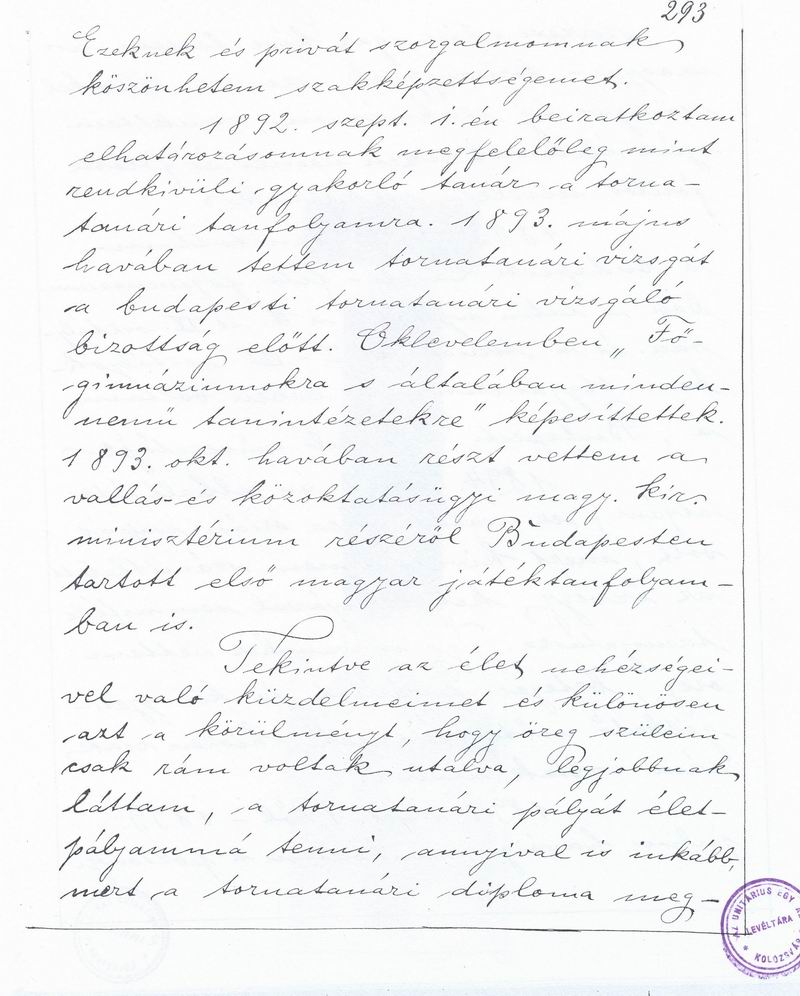 293
Ezeknek és privát szorgalmomnak
köszönhetem szakképzettségemet.
1892. szept. 1.én beiratkoztam
elhatározásomnak megfelelőleg mint
rendkivüli gyakorló tanár a torna-
tanári tanfolyamra. 1893. május
havában tettem tornatanári vizsgát
a budapesti tornatanári vizsgáló
bizottság előtt. Oklevelemben „Fő-
gimnáziumokra s általában minden-
nemü tanintézetekre" képesíttettek.
1893. okt. havában részt vettem a
vallás- és közoktatásügyi magy. kir.
minisztérium részéről Budapesten
tartott első magyar játéktanfolyam-
ban is.
Tekintve az élet nehézségei-
vel való küzdelmeimet és különösen
azt a körülményt, hogy öreg szüleim
csak rám voltak utalva, legjobbnak
láttam, a tornatanári pályát élet-
pályammá tenni, annyival is inkább,
mert a tornatanári diploma meg-
UNITÁRIUS EGY
LEVÉLTÁRA
* KOLOZSV